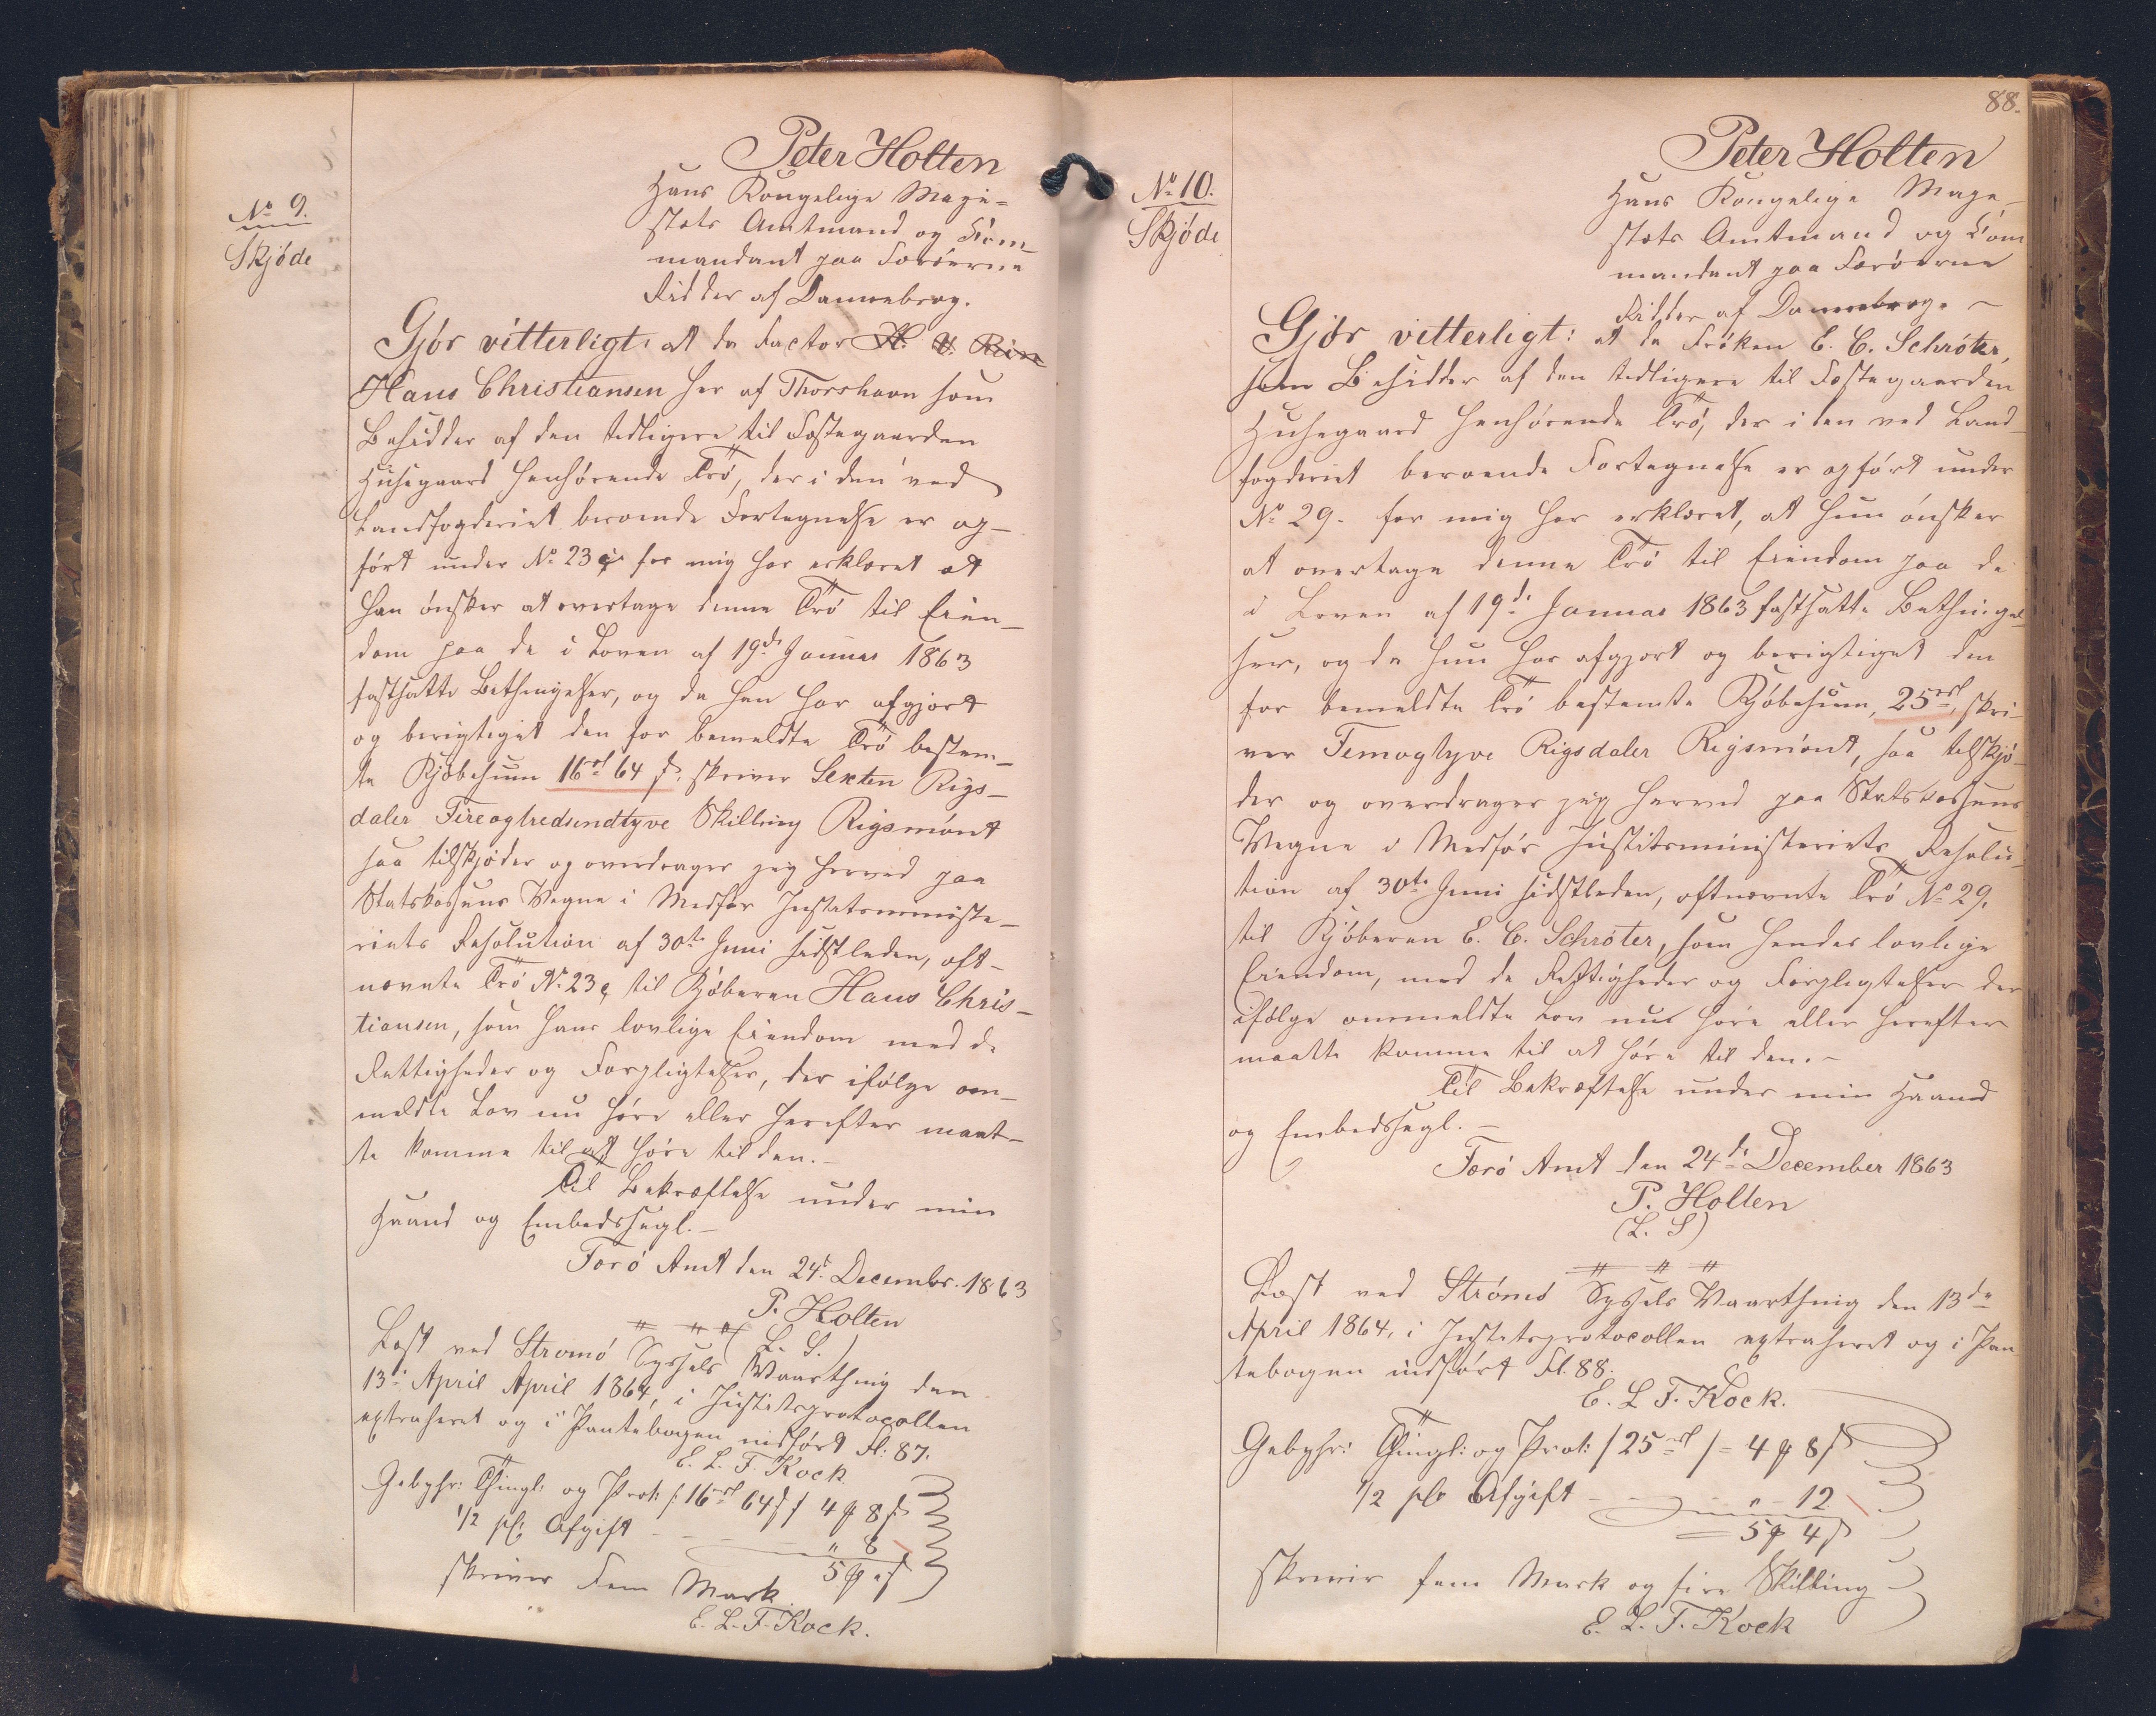 Peter Holten
Hans Kongelige Maje-
stæts Amtmand og Kom-
mandant paa Færöerne
Ridder af Dannebrog.
No 9.
Skjöde
Gjör vitterligt: at da Factor H. V. Rein
Hans Christiansen her af Thorshavn som
Besidder af den tidligere til Fæstegaarden
Husegaard henhörende Trö, der i den ved
Landfogderiet beroende Fortegnelse er op-
fört under No 23 ç for mig har erklæret at
han önsker at overtage denne Trö til Eien-
dom paa de i Loven af 19de Januar 1863
fastsatte Bethingelser, og da han har afgjort
og berigtiget den for bemeldte Trö bestem-
te Kjöbesum 16rd 64 s. skriver Sexten Rigs-
daler Fireogtredsindtyve Skilling Rigsmönt
saa tilskjöder og overdrager jeg herved paa
Statskassens Vegne i Medför Justitsministe-
riets Resolution af 30te Juni sidstleden, oft-
nævnte Trö No 23 ç til Kjöberen Hans Chris-
tiansen, som hans lovlige Eiendom med de
Rettigheder og Forpligtelser, der ifölge om-
meldte Lov nu höre eller herefter maat-
te komme til at höre til den.-
Til Bekræftelse under min
Haand og Embedssegl.-
Færö Amt den 24d. Decembr. 1863
P. Holten
(L. S.)
Læst ved Strömö Syssels Vaarthing den
13d April April 1864, i Justitsprotocollen
extraheret og i Pantebogen indfört Fl: 87.
E. L. F. Kock
Gebyhr: Thingl: og Prot: /: 16rd 64s / 4 # 8 s
1/2 pC. Afgift - - - " 8
5 # " s
skriver Fem Mark
E. L. F. Kock.
88.
Peter Holten
Hans Kongelige Maje-
stæts Amtmand og Kom
mandant paa Færöerne
Ridder af Dannebrog. -
No 10.
Skjöde
Gjör vitterligt: at da Fröken E. C. Schröter,
som Besidder af den tidligere til Fæstegaarden
Husegaard henhörende Trö, der i den ved Land-
fogderiet beroende Fortegnelse er opfört under
No 29. for mig har erklæret, at hun önsker
at overtage denne Trö til Eiendom paa de
i Loven af 19de Januar 1863 fastsatte Bethingel-
ser, og da hun har afgjort og berigtiget den
for bemeldte Trö bestemte Kjöbesum, 25rd, skri-
ver Femogtyve Rigsdaler Rigsmönt, saa tilskjö-
der og overdrager jeg herved paa Statskassens
Vegne i Medför Justitsministeriets Resolu-
tion af 30te Juni sidstleden, oftnævnte Trö No 29.
til Kjöberen E. C. Schröter, som hendes lovlige
Eiendom, med de Rettigheder og Forpligtelser der
ifölge ommeldte Lov nu höre eller herefter
maatte komme til at höre til den.-
Til Bekræftelse under min Haand
og Embedssegl.-
Færö Amt den 24de December 1863
P. Holten
(L. S)
Læst ved Strömö Syssels Vaarthing den 13de
April 1864, i Justitsprotocollen extraheret og i Pan
tebogen indfört Fl. 88.
E. L. F. Kock.
Gebyhr: Thingl: og Prot: / 25rd / = 4 # 8 s
1/2 pC Afgift - - - " - 12
= 5 # 4 s
skriver fem Mark og fire Skilling
E. L. F. Kock